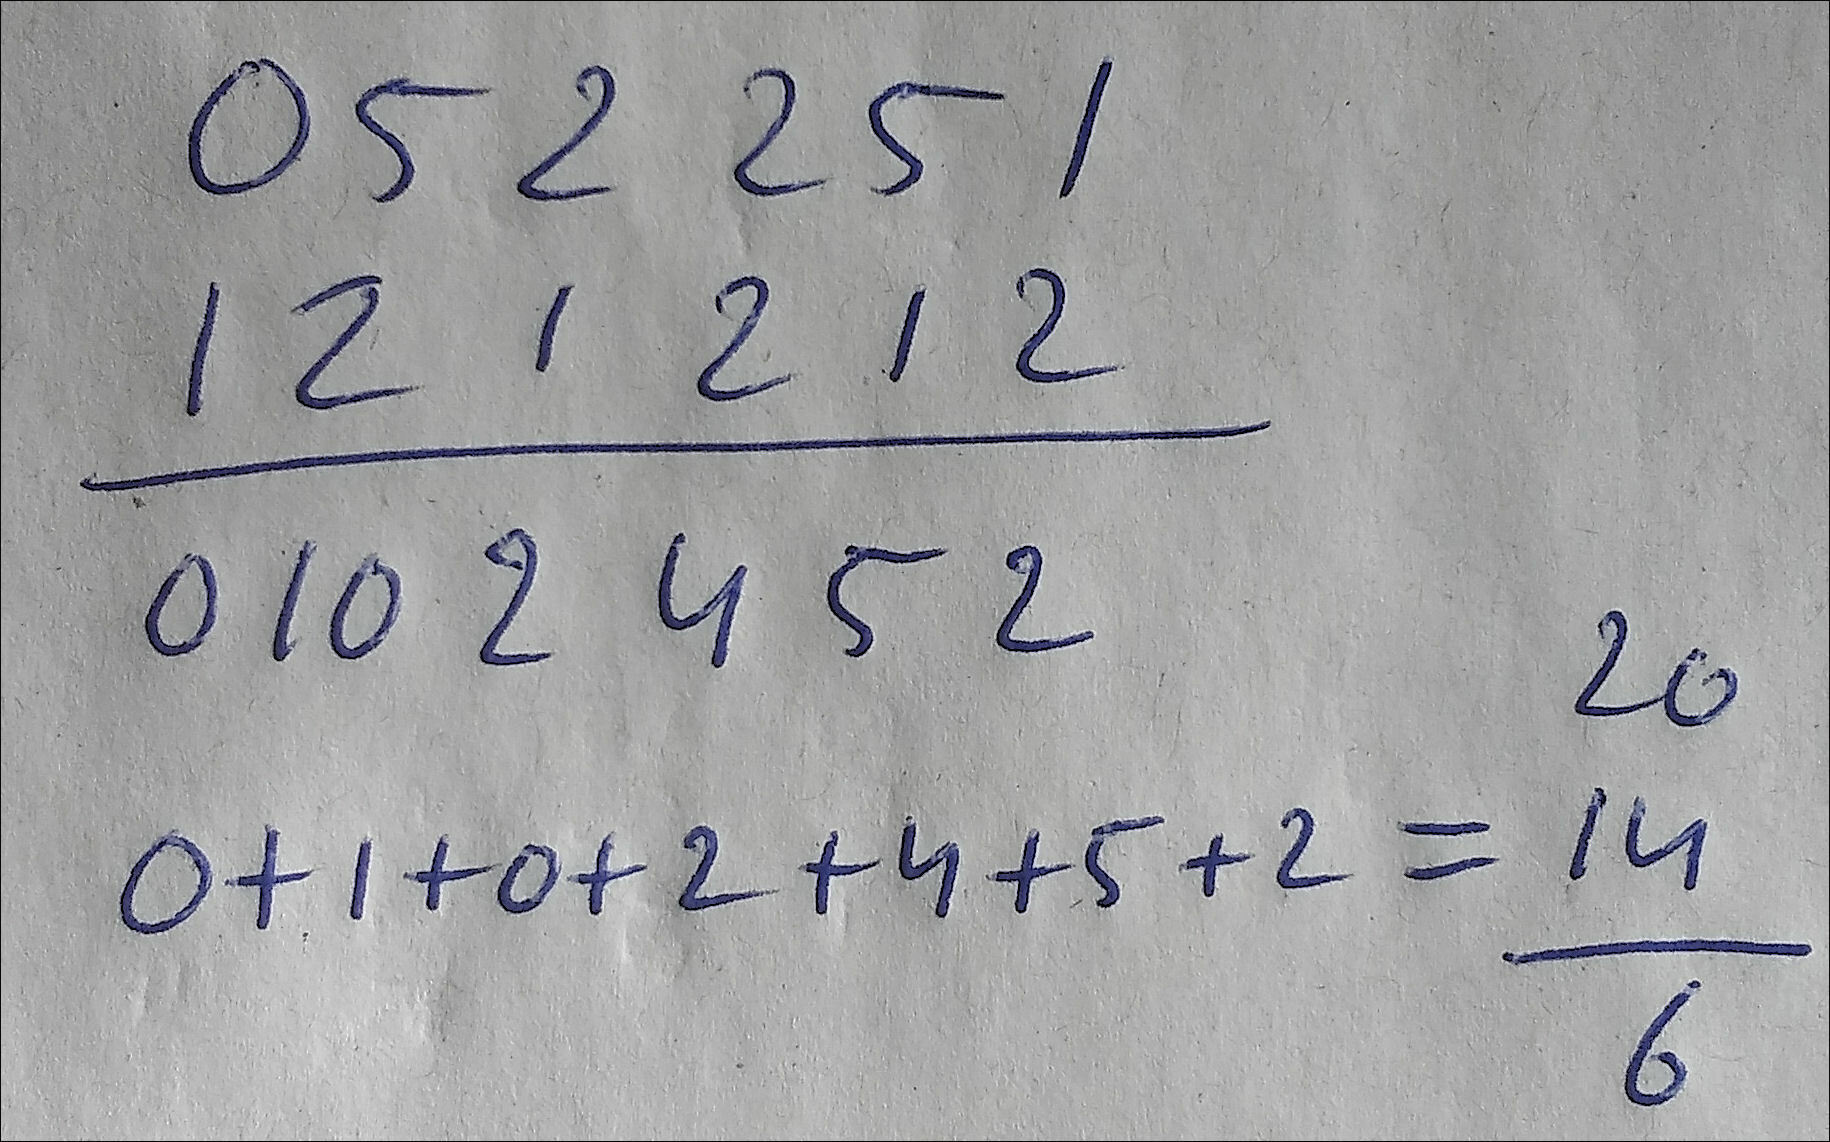 052251
121212
0102452
20
0+1+0+2+4+5+2=14
6